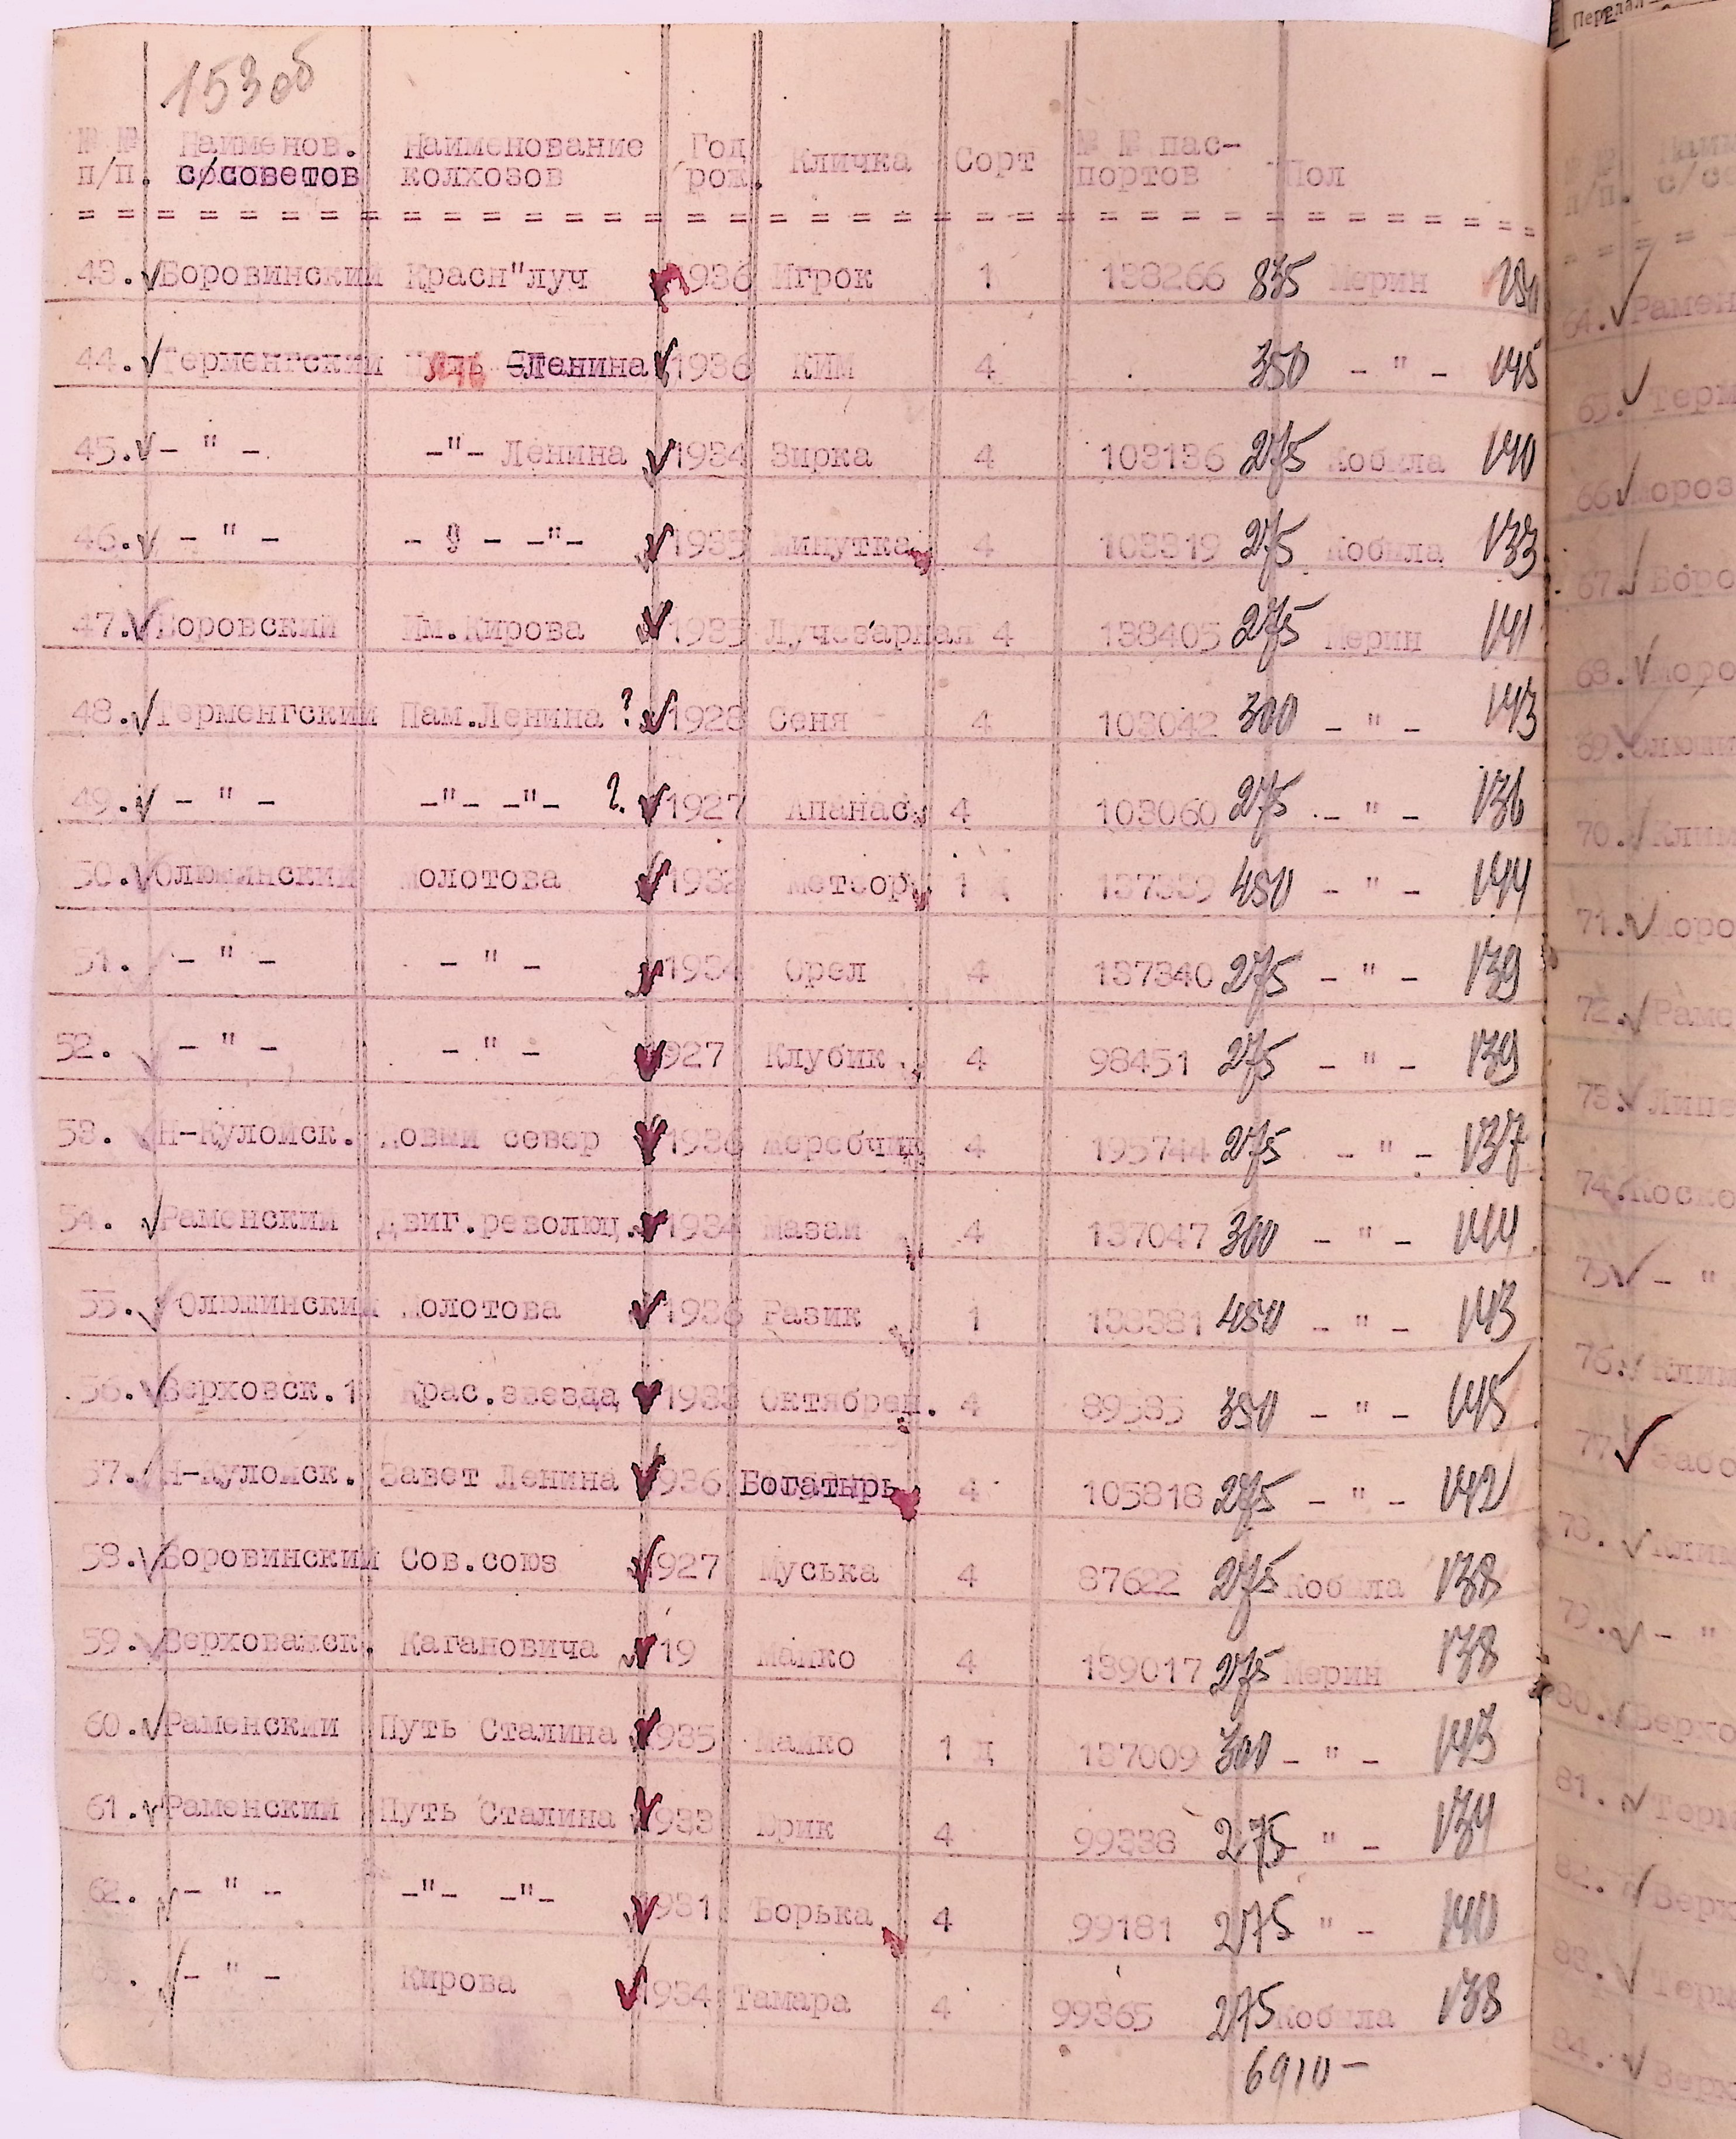 153 об
№ № Наименов. Наименование Год Кличка Сорт № № пас- Пол
п/п. с/советов колхозов рож. портов
43. Боровинский Красн"луч 1936 Игрок 1 138266 835 Мерин
44. Терменгский Путь Ленина 1936 КИМ 4 350 - " - 145
45. - " - -"- Ленина 1934 Зирка 4 103136 275 Кобыла 140
46. - " - - " - -"- 1935 Минутка 4 103319 275 Кобыла 133
47. Боровский Им.Кирова 1935 Лучезарная 4 138405 275 Мерин 141
48. Терменгский Пам.Ленина ? 1928 Сеня 4 103042 300 - " - 143
49. - " - -"- -"- ? 1927 Апанас 4 103060 275 - " - 136
50. Олюшинский Молотова 1932 Метеор 1 137339 450 - " - 144
51. - " - - " - 1934 Орел 4 137340 275 - " - 139
52. - " - - " - 1927 Клубик 4 98451 275 - " - 139
53. Н-Кулойск. Новый север 1936 Жеребчик 4 195744 275 - " - 137
54. Раменский Двиг.революц. 1934 Мазай 4 137047 300 - " - 144
55. Олюшинский Молотова 1936 Разик 1 138381 450 - " - 143
56. Верховск. Крас.звезда 1933 Октябрен. 4 89585 350 - " - 145
57. Н-Кулойск. Завет Ленина 1936 Богатырь 4 105818 275 - " - 142
58. Боровинский Сов.союз 1927 Муська 4 87622 275 Кобыла 138
59. Верховажск. Кагановича 19 Майко 4 139017 275 Мерин 138
60. Раменский Путь Сталина 1935 Майко 1 д 137009 300 - " - 143
61. Раменский Путь Сталина 1933 Юрик 4 99338 275 " - 134
62. - " - -"- -"- 1931 Борька 4 99181 275 " - 140
63. - " - Кирова 1934 Тамара 4 99365 275 Кобыла 138
6910-